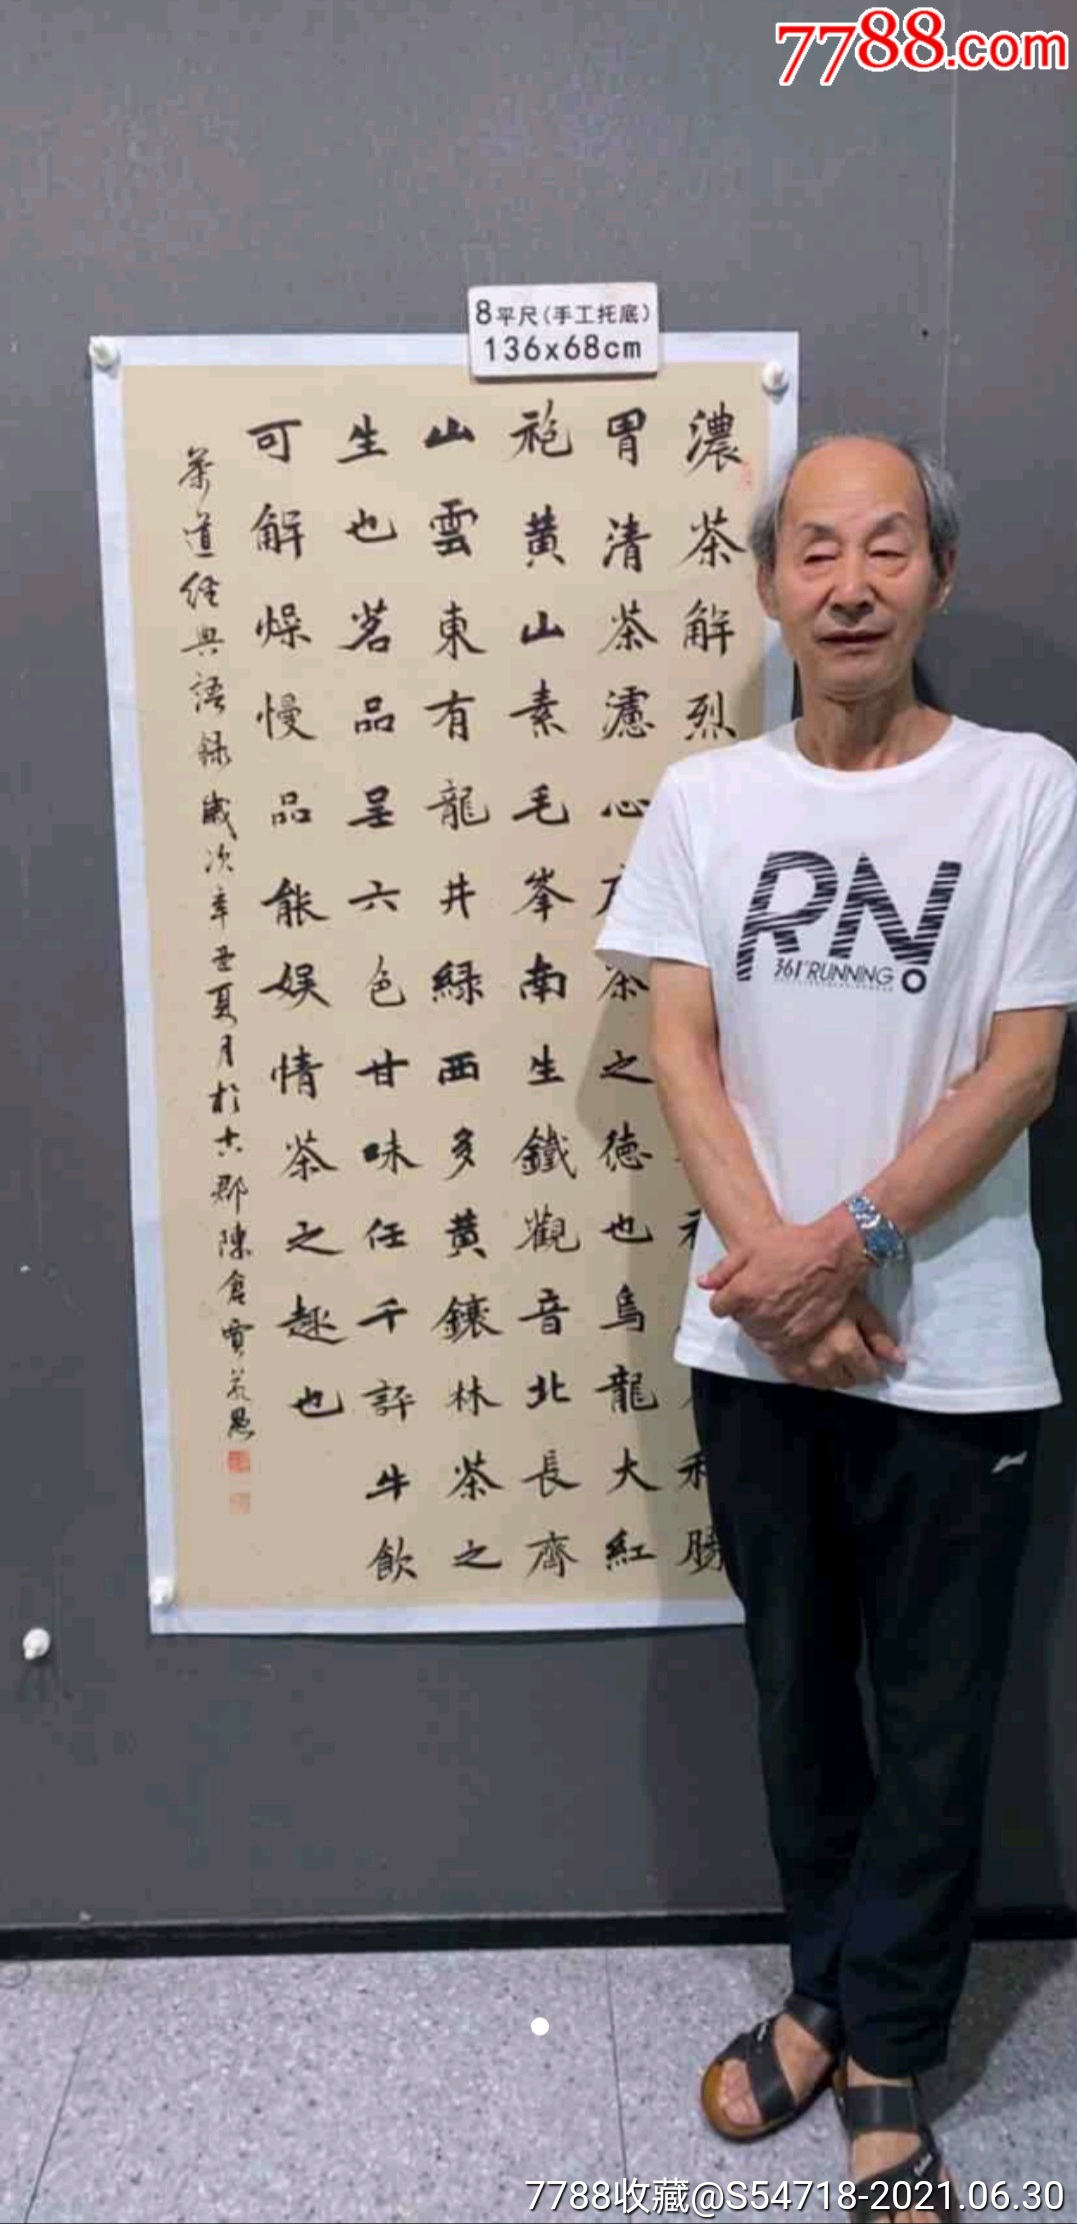 7788.com
8平尺(手工托底)
136x68cm
濃茶解烈
勝
胃清茶濾心
茶之德也烏龍大紅
袍黃山素毛峯南生鐵觀音北長齊
山雲東有龍井綠西多黃鑲林茶之
生也茗品呈六色甘味任千評牛飲
可解燥慢品能娛情茶之趣也
茶道經典語錄歲次辛丑夏月於古郡陳倉
RN
361°RUNNING
7788收藏@S54718-2021.06.30